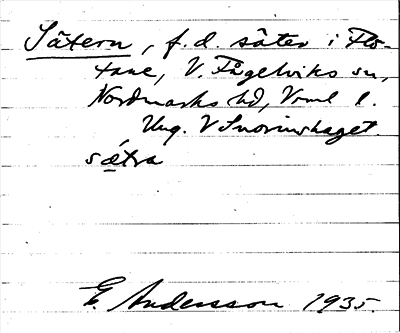 Sätern, f.d. säter i Flo-
tane, V. Fågelviks sn,
Nordmarks hd, Vrml l.
Ung. V Snorinshaget.
sǽtra
E. Andersson 1935.